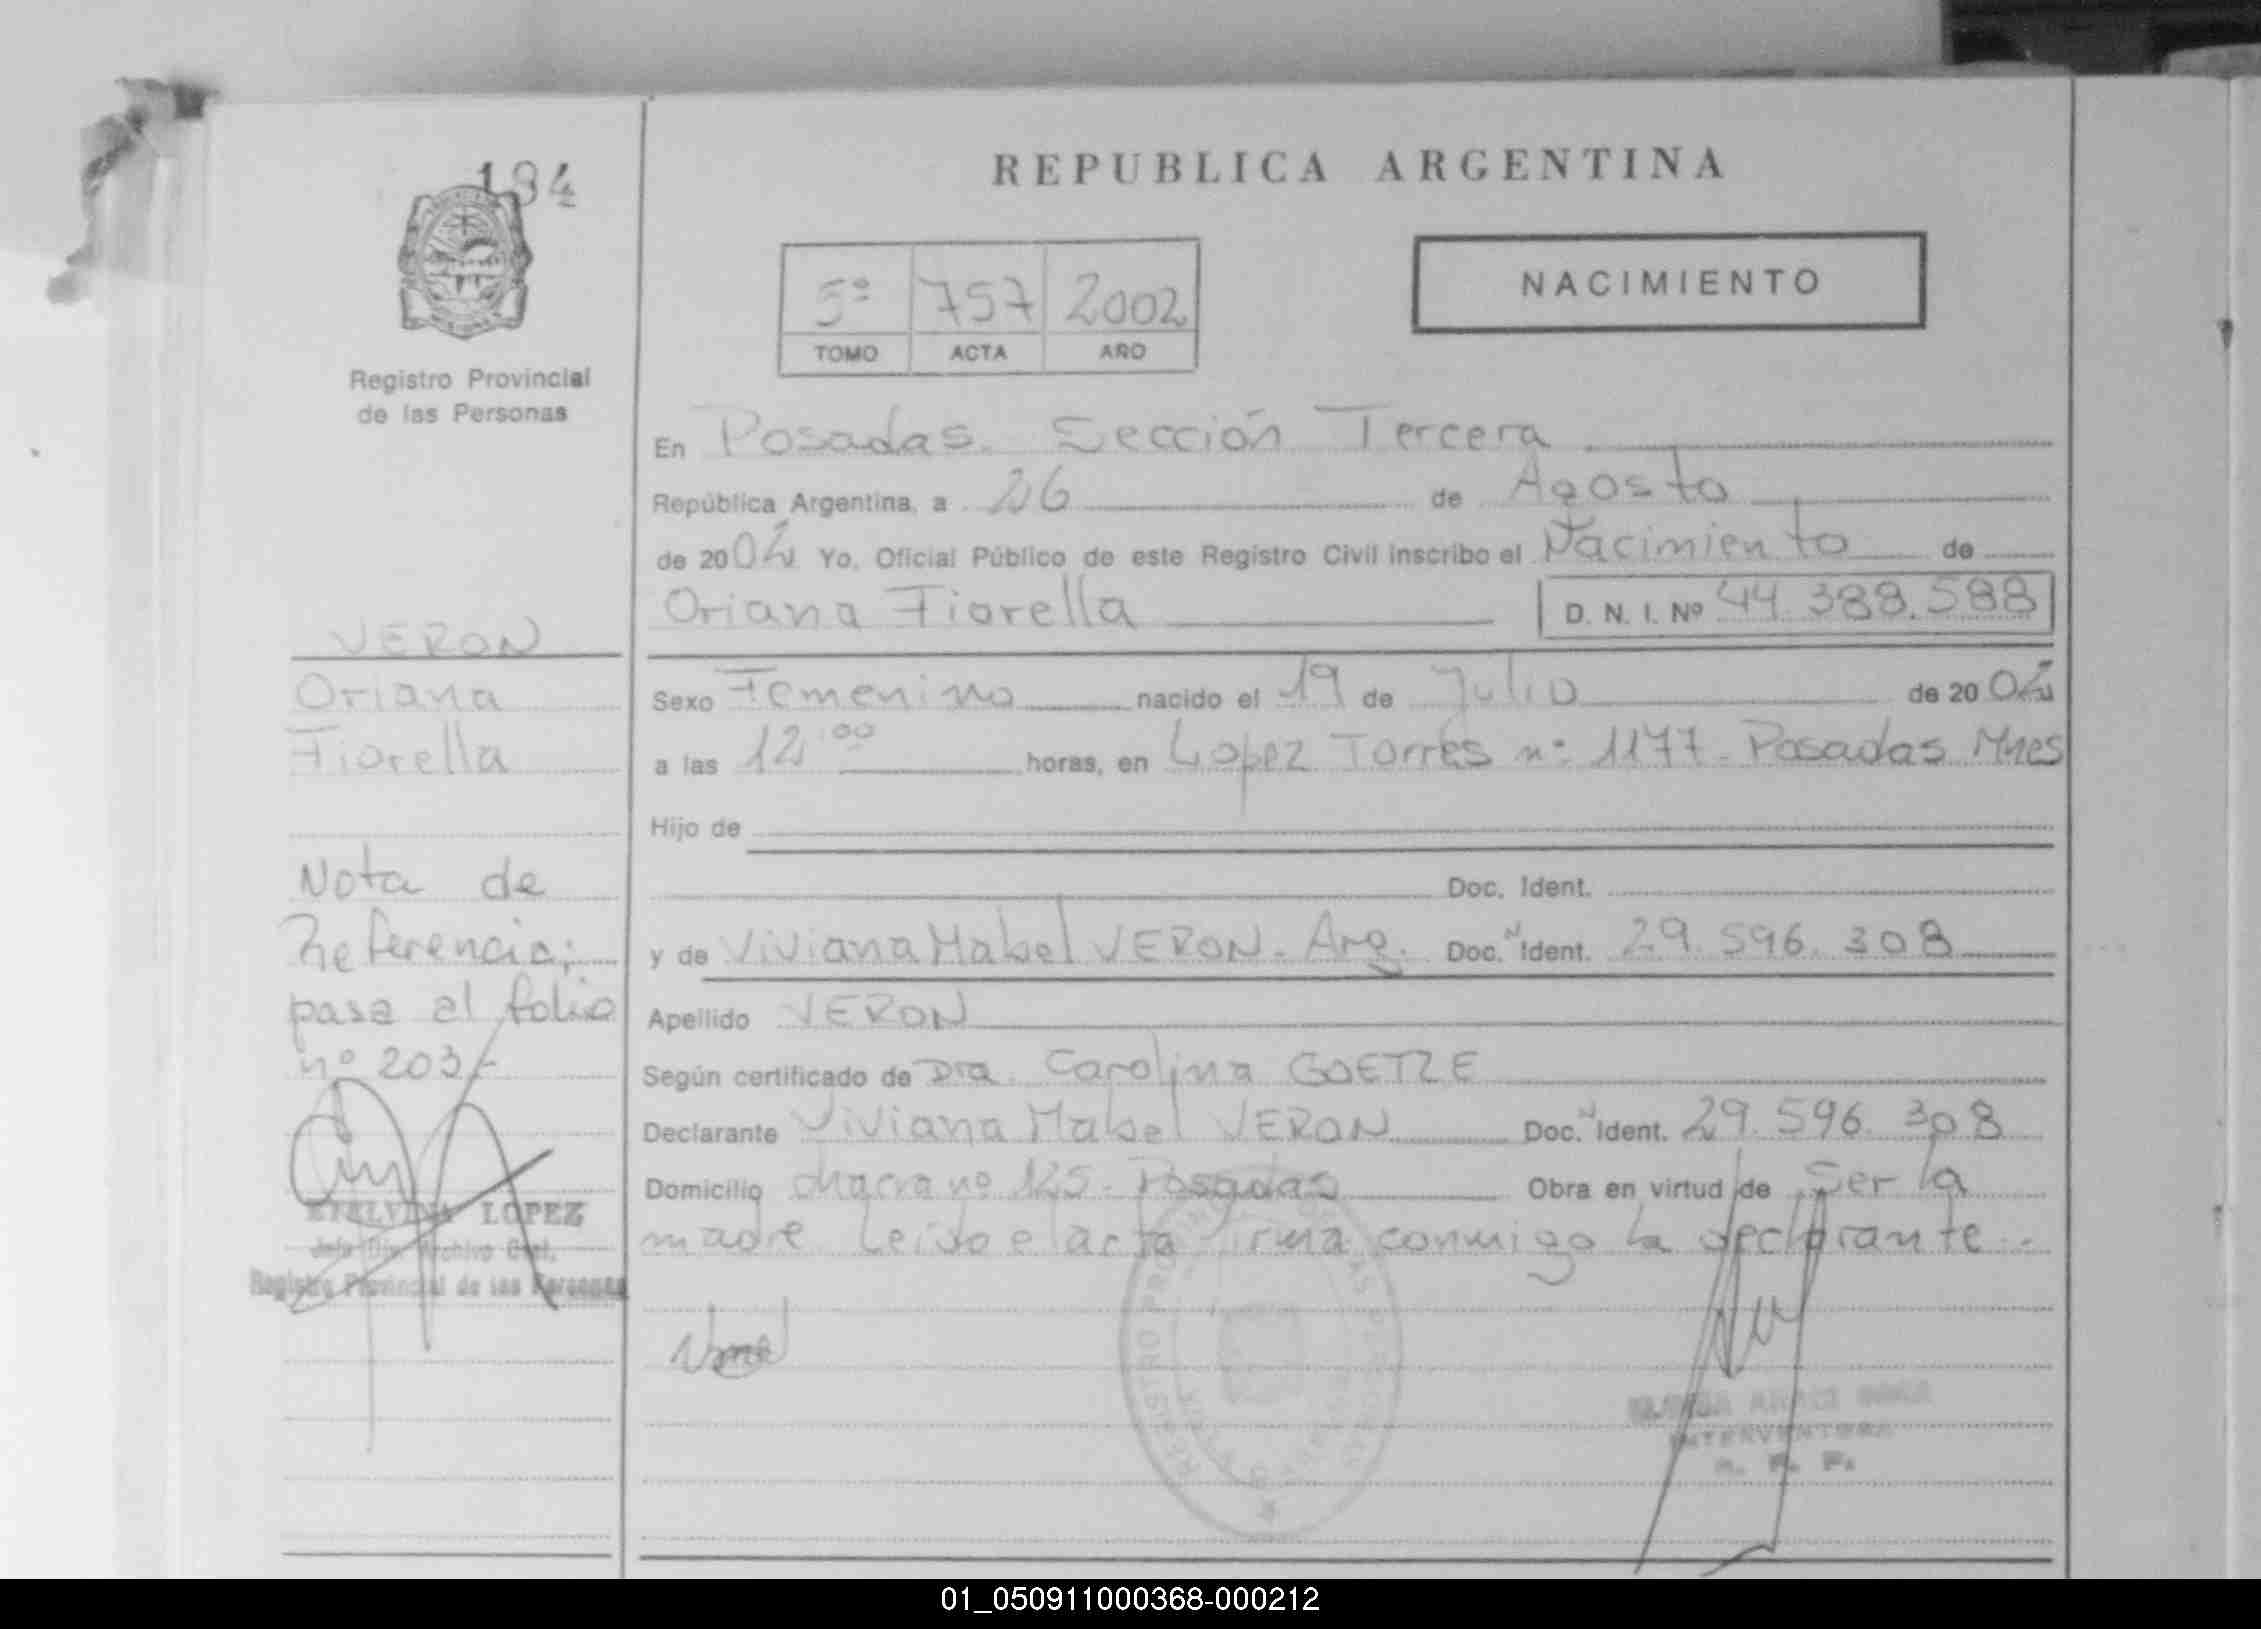 194
REPUBLICA ARGENTINA
5º 757 2002
TOMO ACTA AÑO
NACIMIENTO
Registro Provincial
de las Personas
En Posadas. Sección Tercera
República Argentina, a 26 de Agosto
de 2002 Yo, Oficial Público de este Registro Civil inscribo el Nacimiento de
Oriana Fiorella D. N. I. Nº 44.388.588
VERON
Oriana
Fiorella
Sexo Femenino nacido el 19 de Julio de 2002
a las 12:00 horas, en Lopez Torres nº 1177. Posadas Mnes
Hijo de
Doc. Ident.
y de Viviana Mabel VERON. Arg. Doc. N Ident. 29.596.308
Apellido VERON
Según certificado de Dra. Carolina GOETZE
Declarante Viviana Mabel VERON Doc. N Ident. 29.596.308
Domicilio chacra nº 125. Posadas Obra en virtud de ser la
madre Leido el acta firma conmigo la declarante.
Nota de
Referencia;
pasa al folio
nº 203.-
ETELVINA LOPEZ
Jefe Div. Archivo Gral.
Registro Provincial de las Personas
REGISTRO PROVINCIAL DE LAS PERSONAS
INTERVENTORA
R. P. P.
01_050911000368-000212